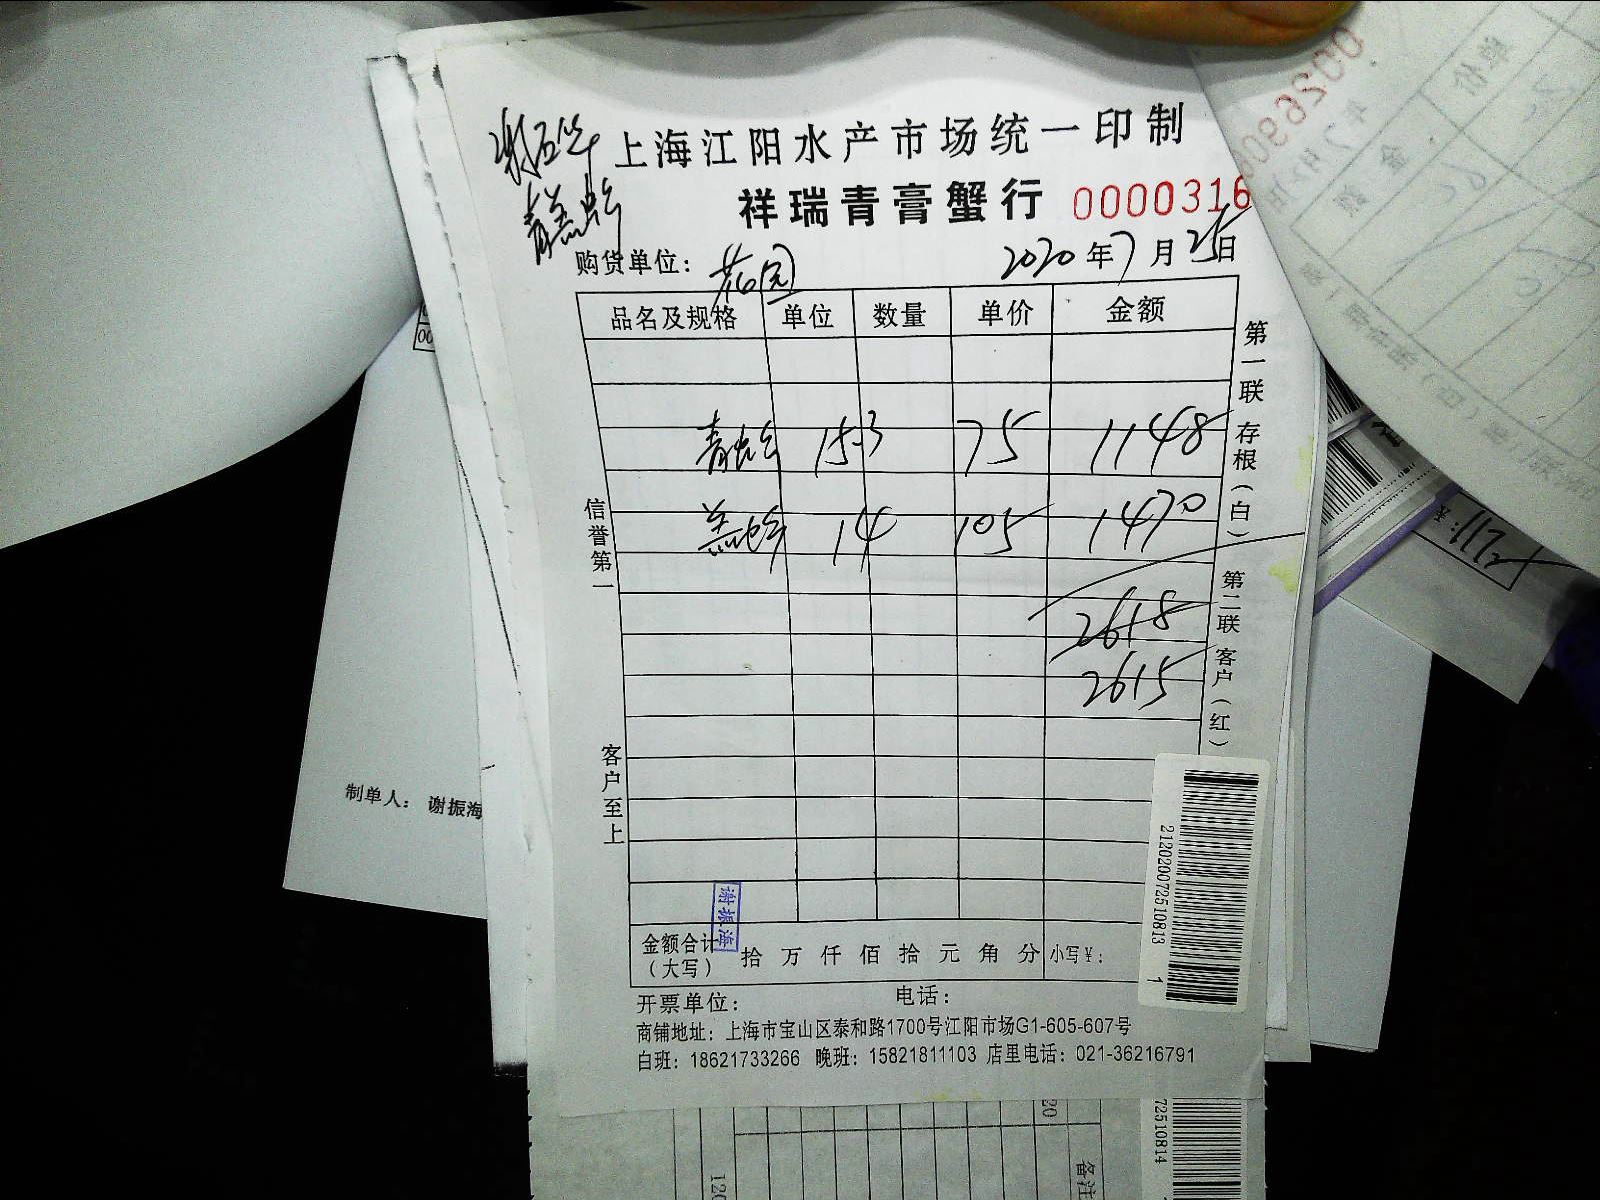 上海江阳水产市场统一印制
祥瑞青膏蟹行 0000316
购货单位: 花园 2020年7月25日
品名及规格 单位 数量 单价 金额
青蟹 15.3 75 1148
羔蟹 14 105 1470
2618
2615
信誉第一
客户至上
第一联 存根(白) 第二联 客户(红)
金额合计(大写) 拾 万 仟 佰 拾 元 角 分 小写¥:
谢振海
开票单位: 电话:
商铺地址: 上海市宝山区泰和路1700号江阳市场G1-605-607号
白班: 18621733266 晚班: 15821811103 店里电话: 021-36216791
212020072510813 1
制单人: 谢振海
72510814
备注
0026900